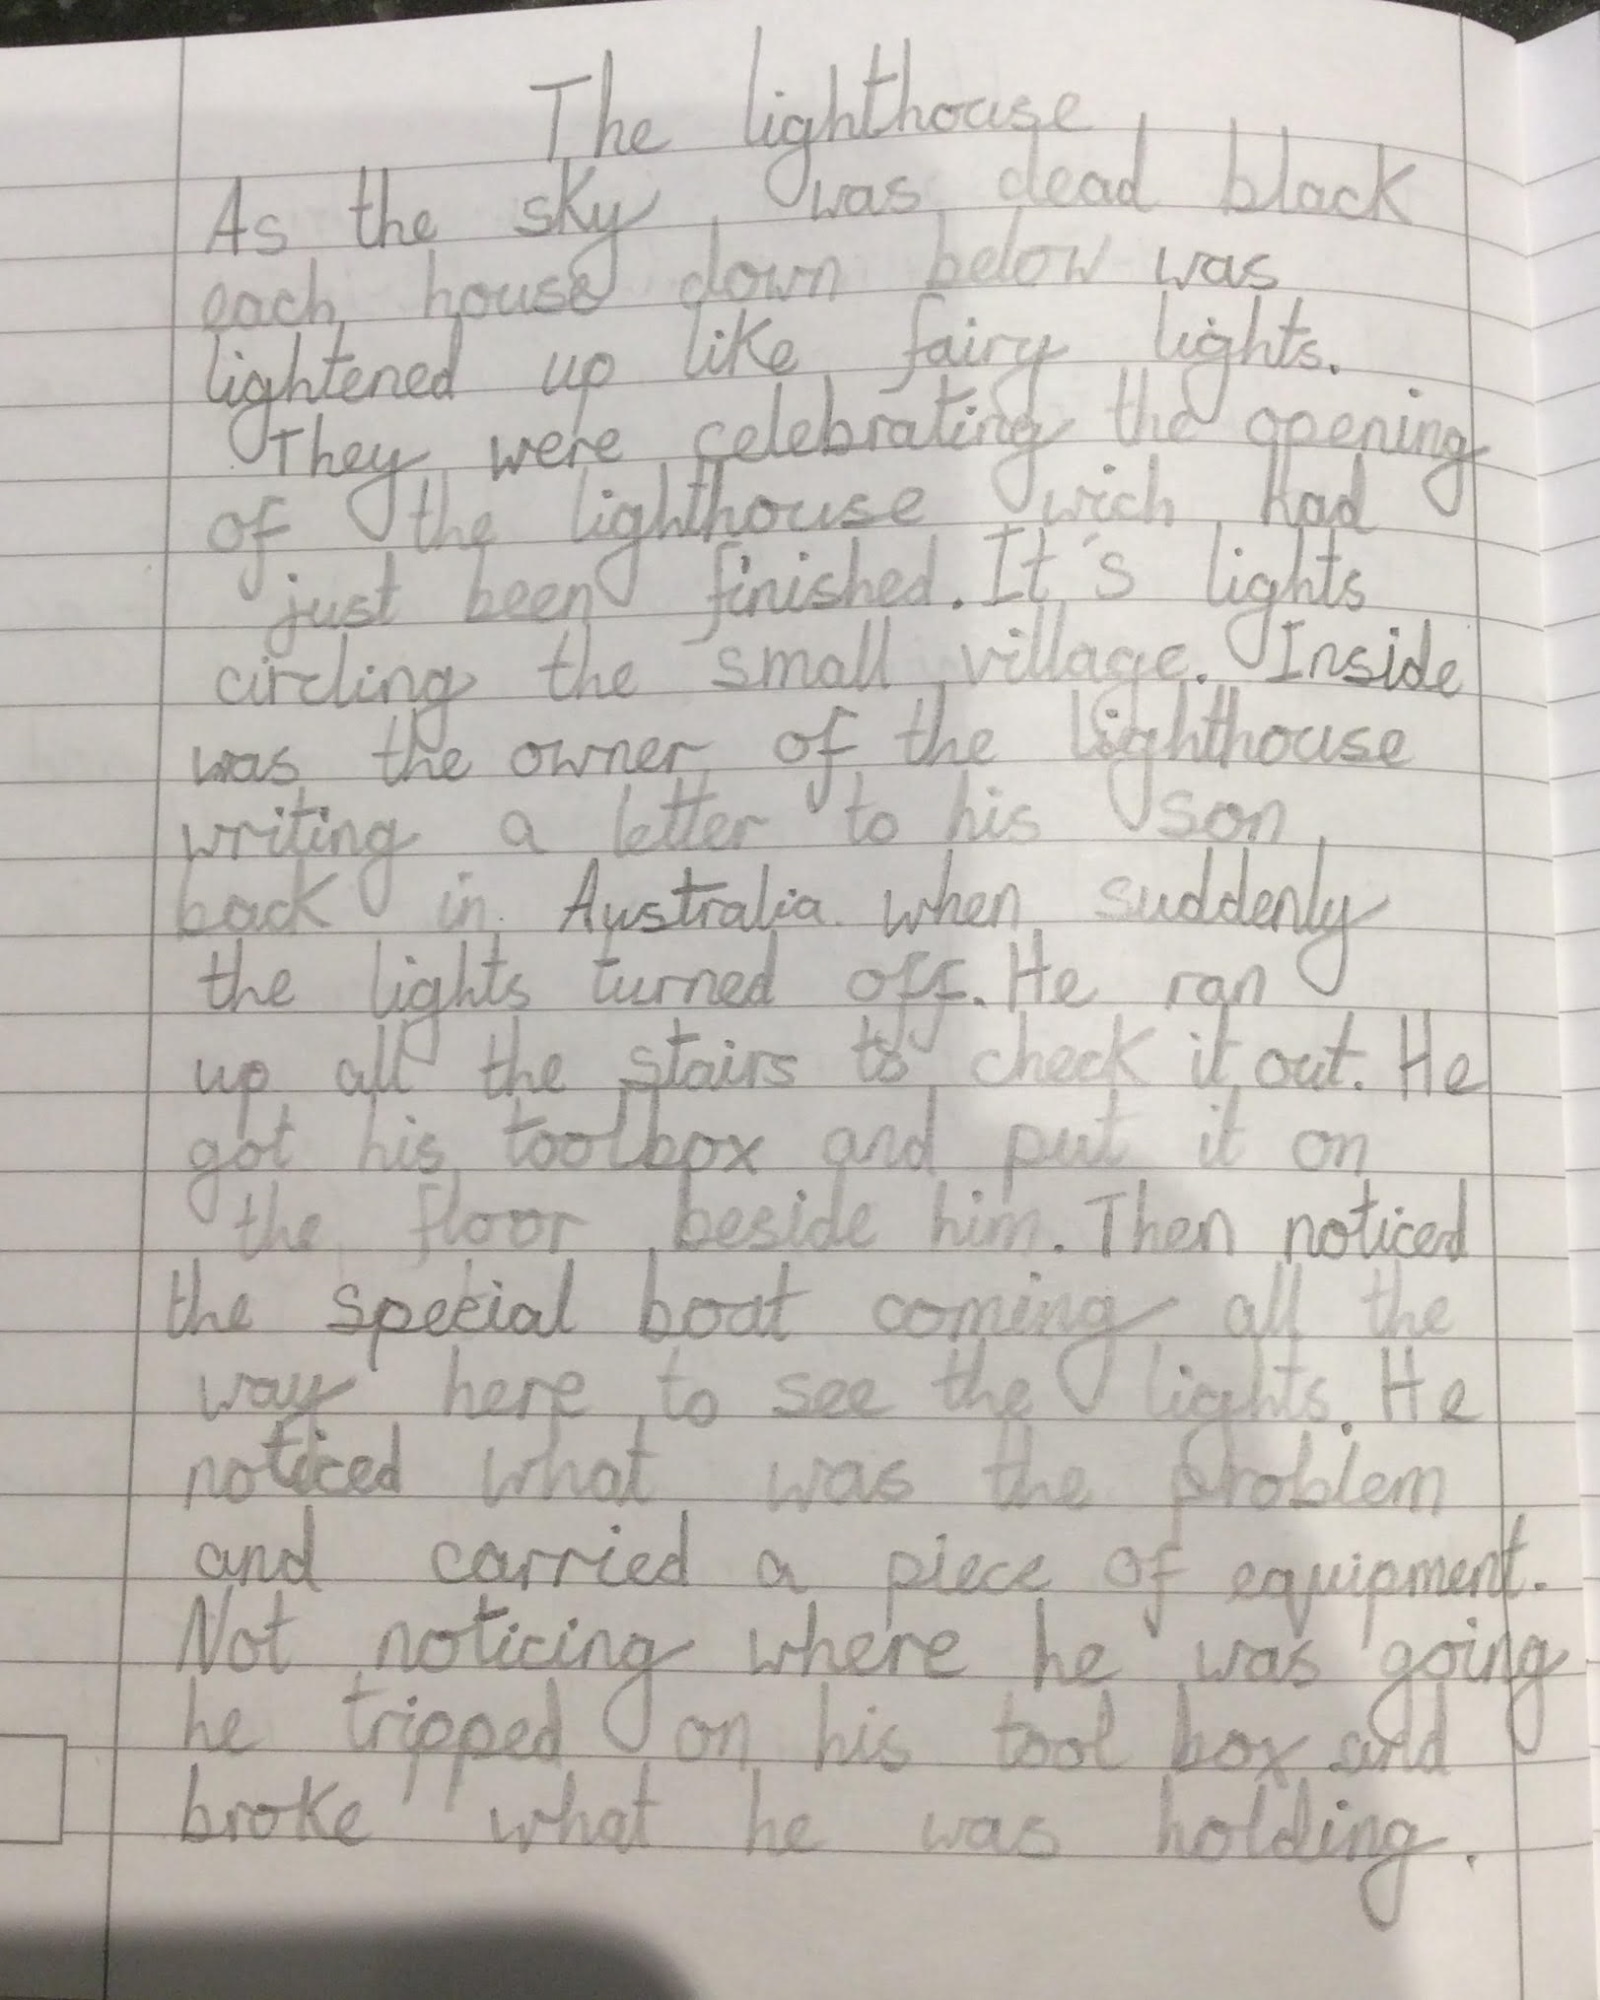 The lighthouse
As the sky was dead black
each house down below was
lightened up like fairy lights.
They were celebrating the opening
of the lighthouse wich had
just been finished. It's lights
circling the small village. Inside
was the owner of the lighthouse
writing a letter to his son
back in Australia when suddenly
the lights turned off. He ran
up all the stairs to check it out. He
got his toolbox and put it on
the floor beside him. Then noticed
the special boat coming all the
way here to see the lights. He
noticed what was the problem
and carried a piece of equipment.
Not noticing where he was going
he tripped on his tool box and
broke what he was holding.